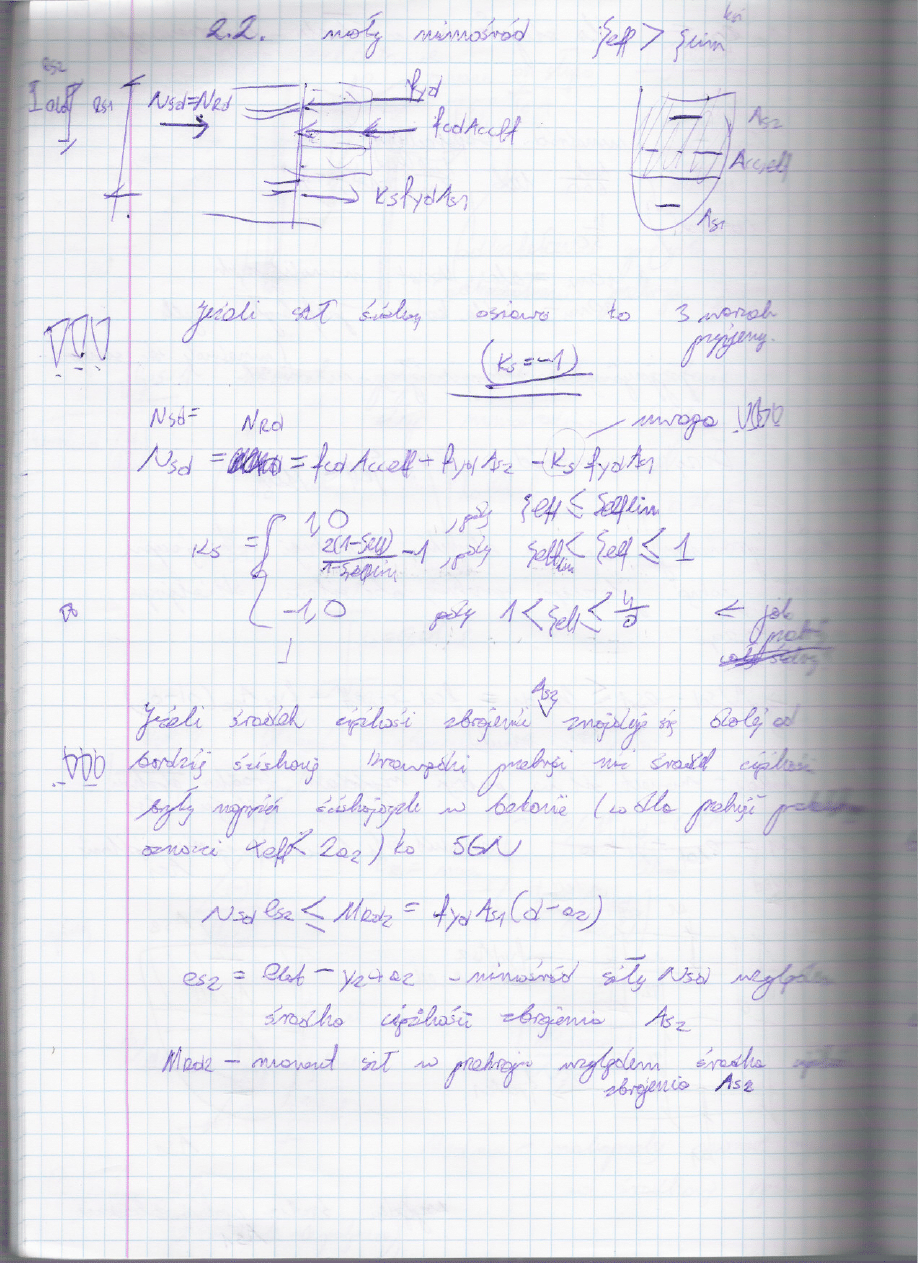 2.2. mały mimośród ξeff > ξlim
ksi
es2
es1
NSd=NRd
fyd
fcdAcceff
κsfydAs1
As2
Acc,eff
As1
Jeżeli sł ściskany osiowo to 3 warunek przyjmujemy.
(κs = -1)
NSd= NRd
uwaga !!!
NSd = = fcdAcceff + fydAs2 - κs fydAs1
κs =
1,0 , gdy ξeff ≤ ξefflim
2(1-ξeff)/(1-ξefflim) -1 , gdy ξefflim < ξeff ≤ 1
-1,0 gdy 1 < ξeff ≤ ← jak
Jeżeli środek ciężkości zbrojenia As2 znajduje się dalej od
bardziej ściskanej krawędzi przekroju niż środek ciężkości
bryły naprężeń ściskających w betonie (co dla przekroju
oznacza xeff < 2a2) to SGN
NSd es2 ≤ MRd2 = fydAs1(d-a2)
es2 = etot - y2+a2 - mimośród siły NSd względem
środka ciężkości zbrojenia As2
MRd2 - moment sił w przekroju względem środka
zbrojenia As2